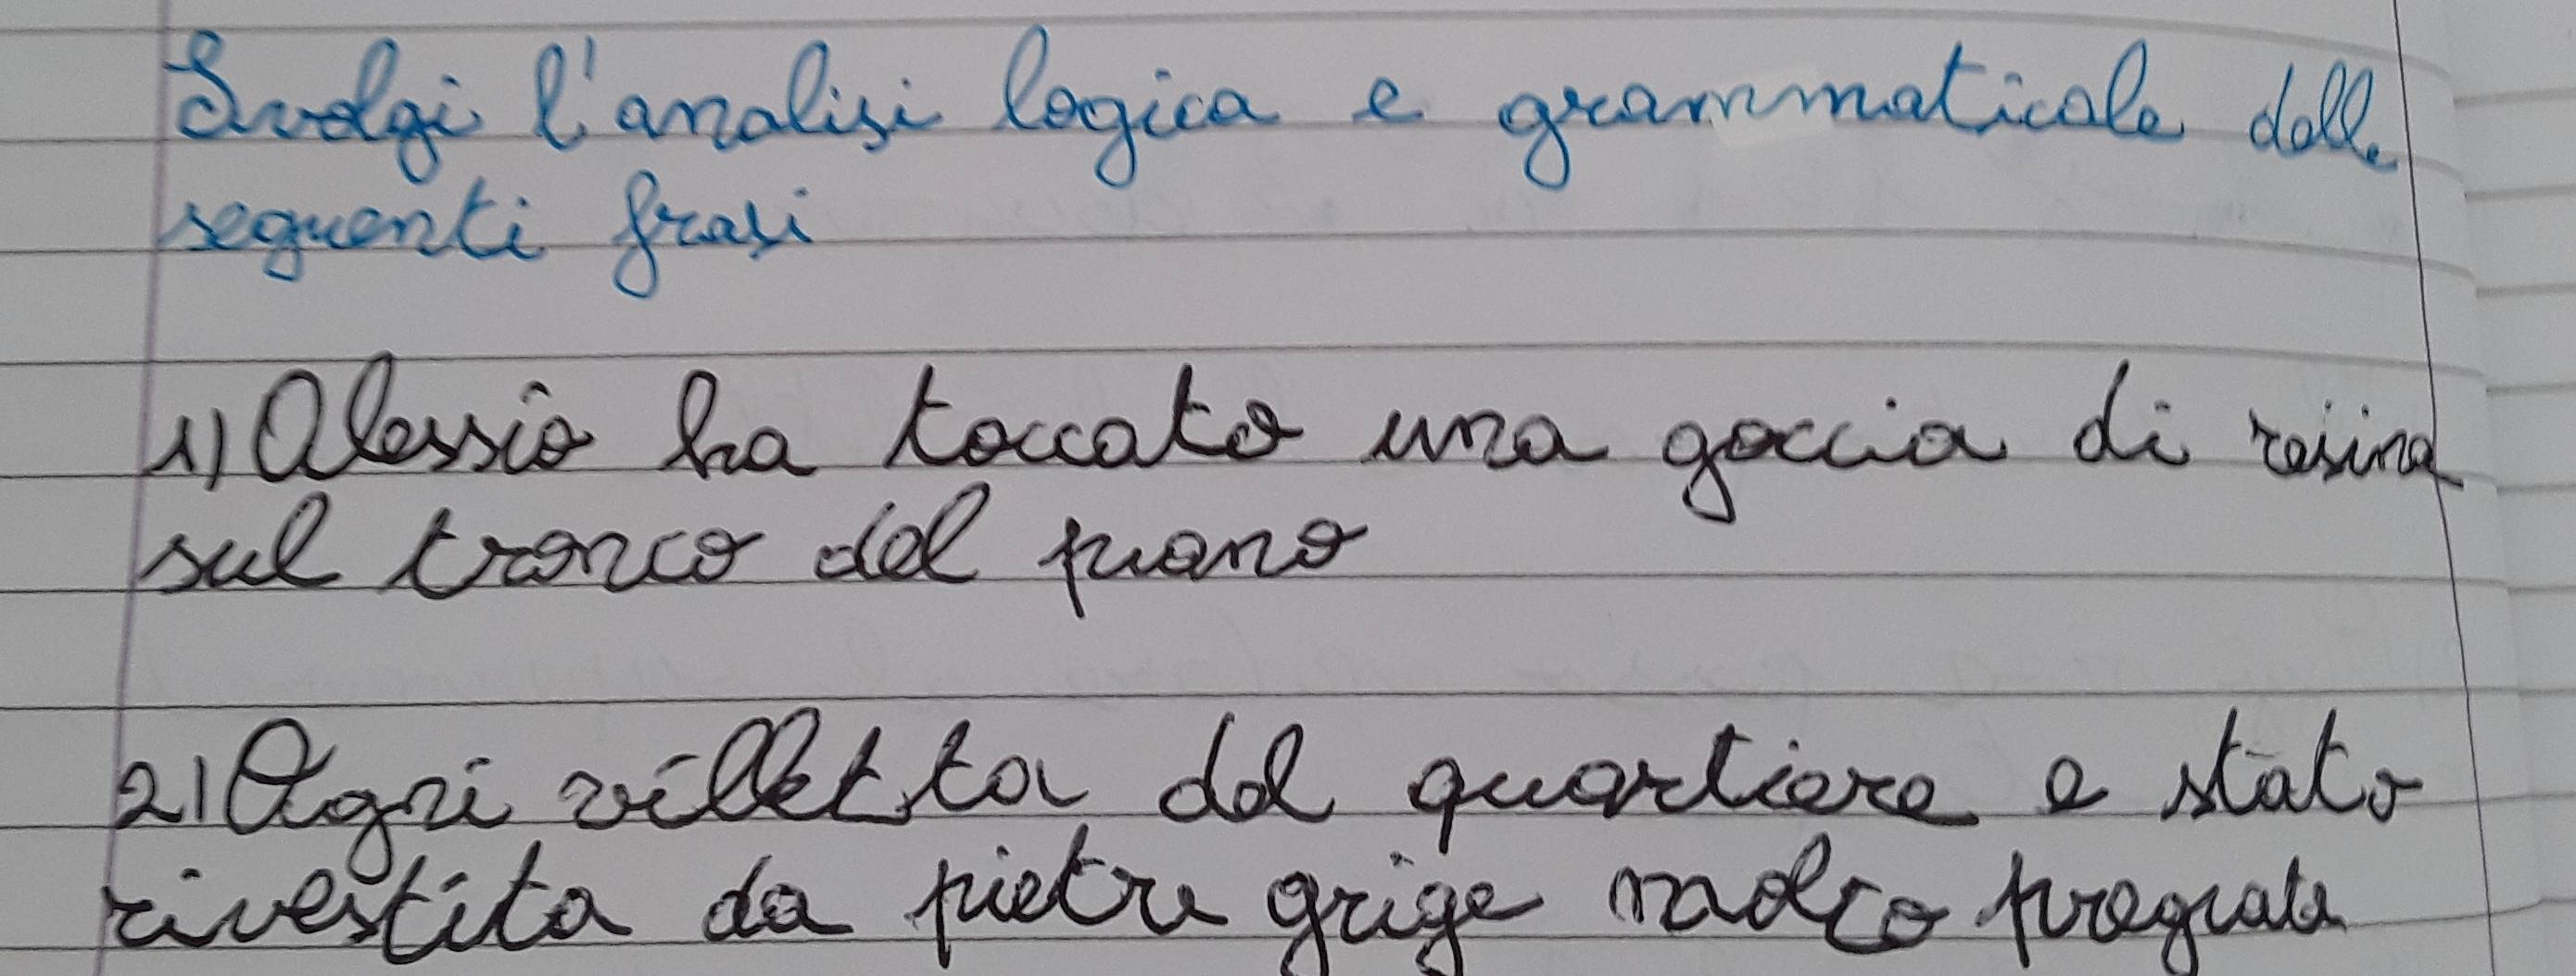 Svolgi l'analisi logica e grammaticale delle
seguenti frasi
1) Alessio ha toccato una goccia di resina
sul tronco del piano
2) Ogni villetta del quartiere e stato
rivestita da pietre grige molto pregiate